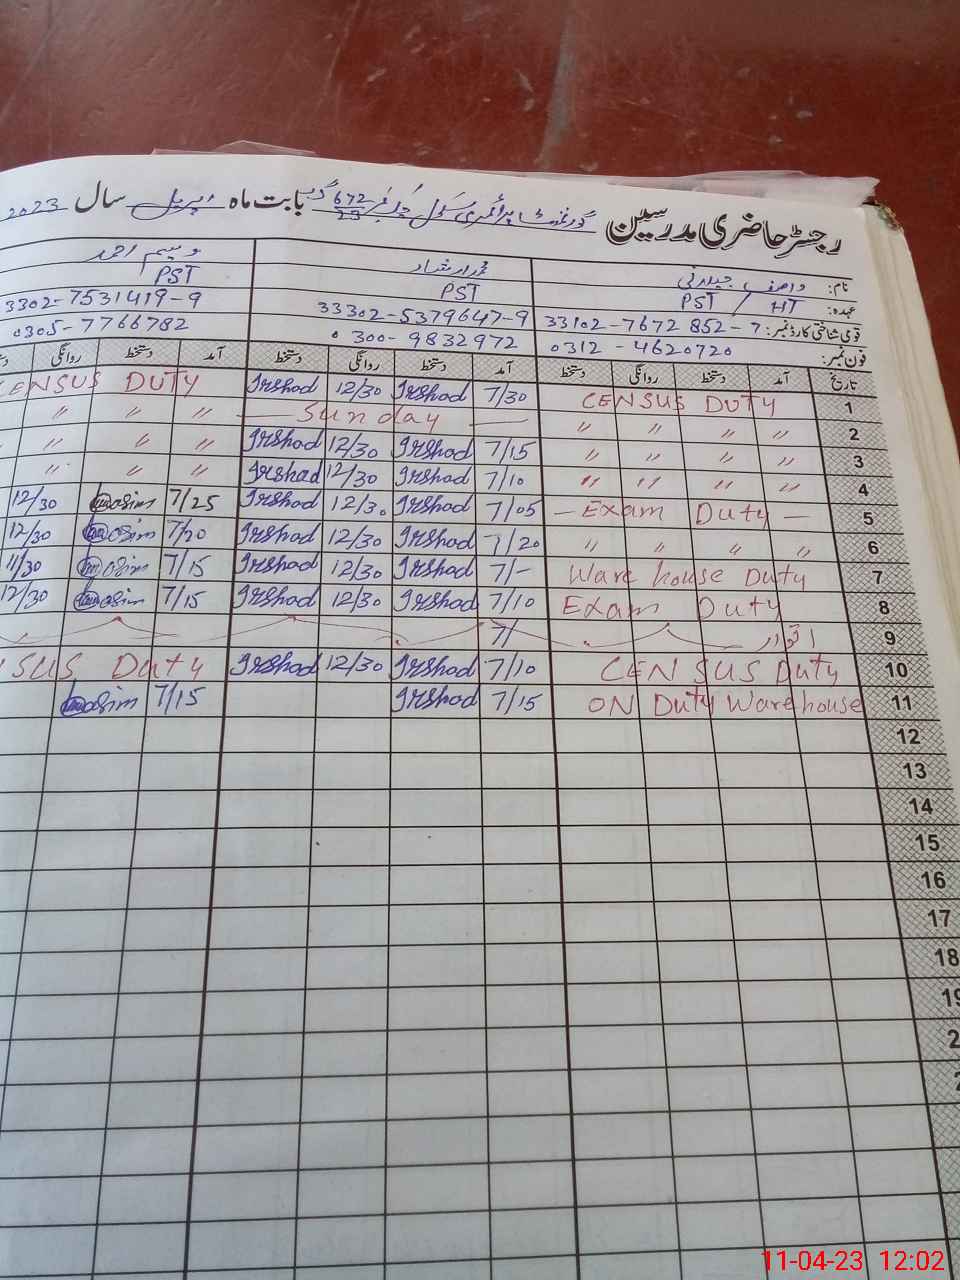 رجسٹر حاضری مدرسین گورنمنٹ پرائمری سکول چک نمبر 672/23 گ ب بابت ماہ اپریل سال 2023
نام: واصف جیلانی محمد ارشاد وسیم احمد
عہدہ: PST / HT PST PST
قومی شناختی کارڈ نمبر: 33102-7672852-7 33302-5379647-9 3302-7531419-9
فون نمبر: 0312-4620720 0300-9832972 0305-7766782
تاریخ آمد دستخط روانگی دستخط آمد دستخط روانگی دستخط آمد دستخط روانگی
1 CENSUS DUTY 7/30 Irshad 12/30 Irshad CENSUS DUTY
2 " " " " Sunday " " "
3 " " " " 7/15 Irshad 12/30 Irshad " " "
4 " " " " 7/10 Irshad 12/30 Irshad " " "
5 Exam Duty 7/05 Irshad 12/30 Irshad 7/25 Wasim 12/30
6 " " " " 7/20 Irshad 12/30 Irshad 7/20 Wasim 12/30
7 Ware house Duty 7/- Irshad 12/30 Irshad 7/15 Wasim 11/30
8 Exam Duty 7/10 Irshad 12/30 Irshad 7/15 Wasim 12/30
9 اتوار 7/
10 CENSUS Duty 7/10 Irshad 12/30 Irshad SUS Duty
11 ON Duty Warehouse 7/15 Irshad 7/15 Wasim
12
13
14
15
16
17
18
19
11-04-23 12:02